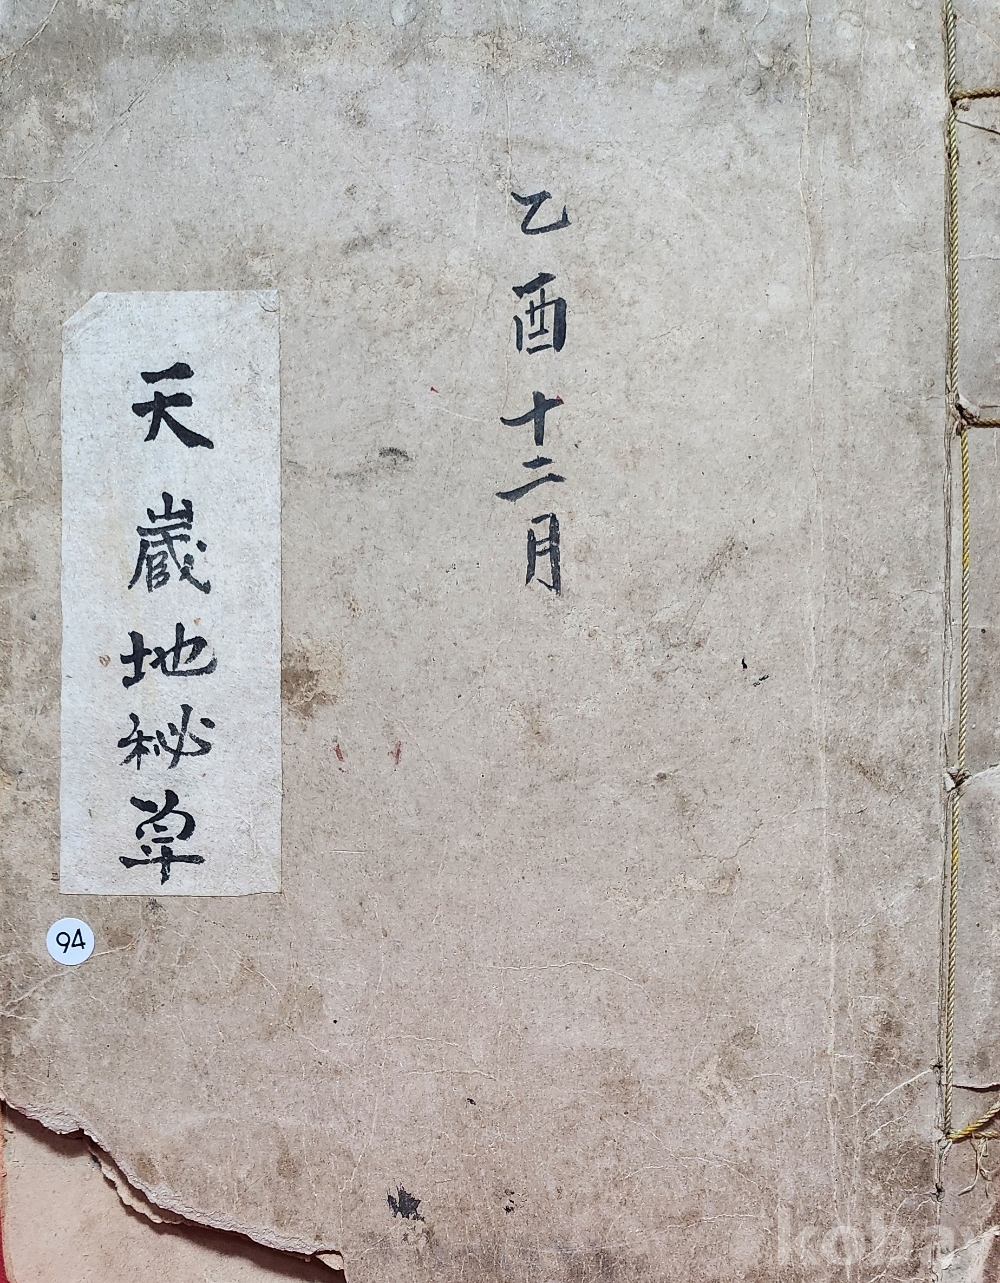 乙酉十二月
天藏地秘草
94
kobay